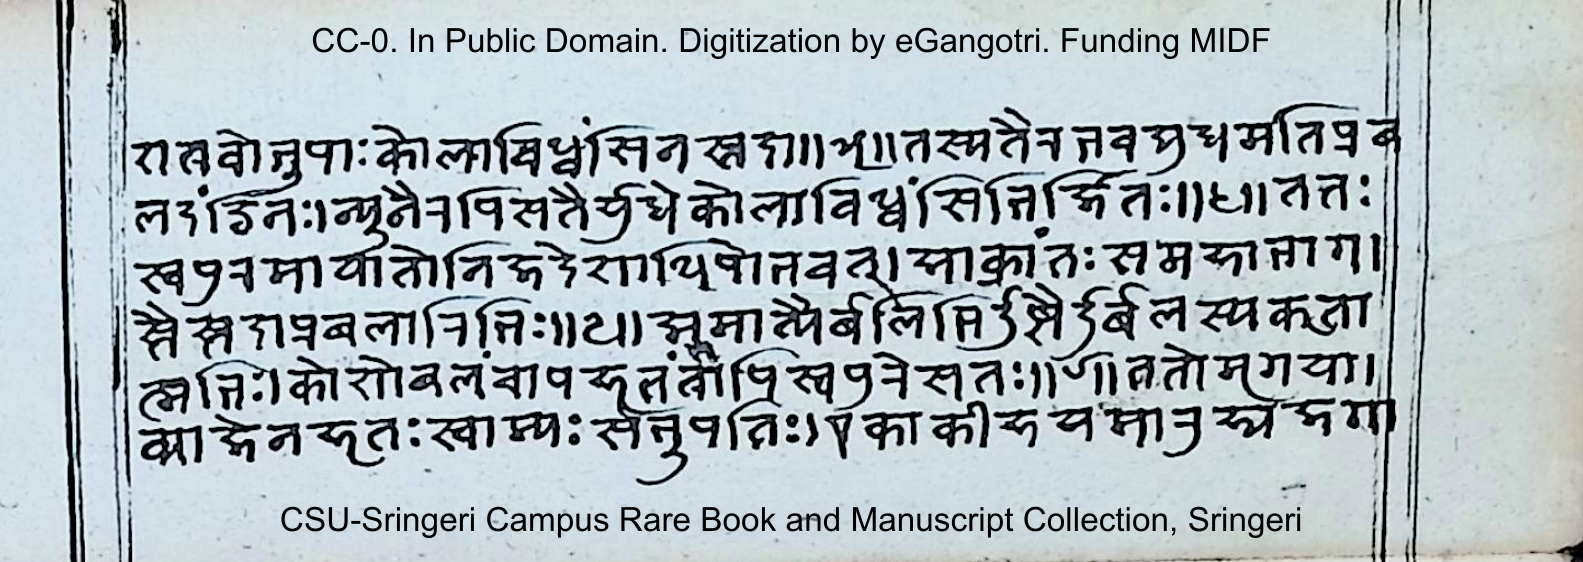 CC-0. In Public Domain. Digitization by eGangotri. Funding MIDF
शत्रवो भूपाः कोलाविध्वंसिनस्तदा॥५॥ तस्य तैरभवद्युद्धमतिप्रब
लदंडिनः। न्यूनैरपि स तैर्युद्धे कोलाविध्वंसिभिर्जितः॥६॥ ततः
स्वपुरमायातो निजदेशाधिपोभवत्। आक्रांतः स महाभाग।
स्तैस्तदा प्रबलारिभिः॥७॥ अमात्यैर्बलिभिर्दुष्टैर्दुर्बलस्य दुरा
त्मभिः। कोशो बलं चापहृतं तत्रापि स्वपुरे सतः॥८॥ ततो मृगया।
व्याजेन हृतः स्वाम्यः स भूपतिः। एकाकी हयमारुह्य जगा
CSU-Sringeri Campus Rare Book and Manuscript Collection, Sringeri